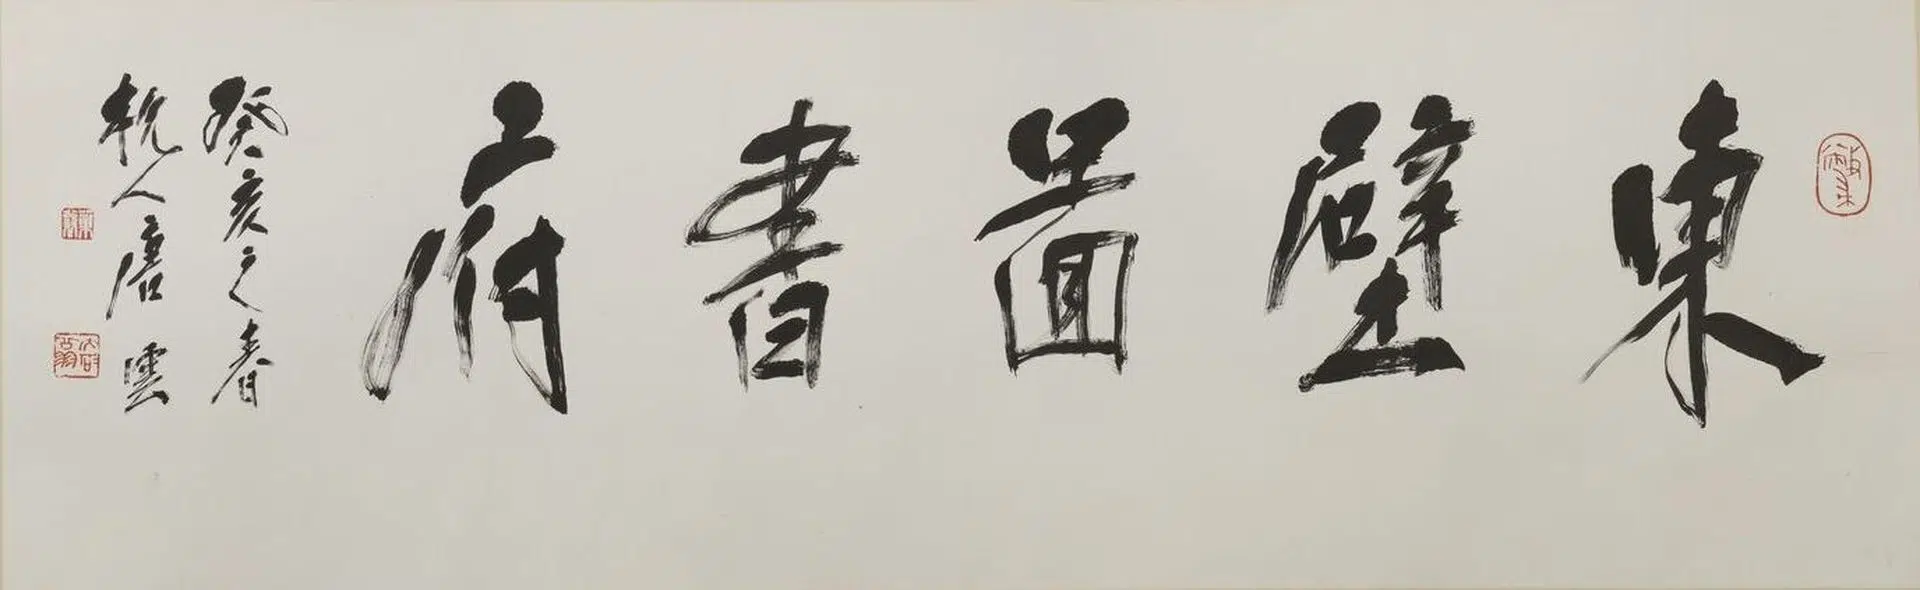 東壁圖書府
癸亥之春
杭人唐雲